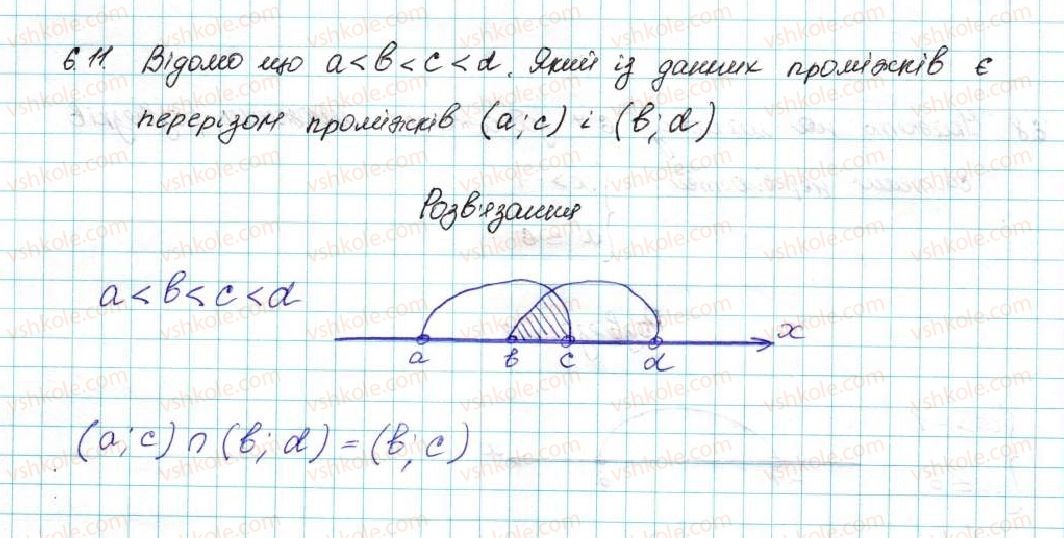 6.11. Відомо що a < b < c < d. Який із данних проміжків є
перерізом проміжків (a; c) і (b; d)
Розв'язання
a < b < c < d
x
a b c d
(a; c) ∩ (b; d) = (b; c)
vshkole.com